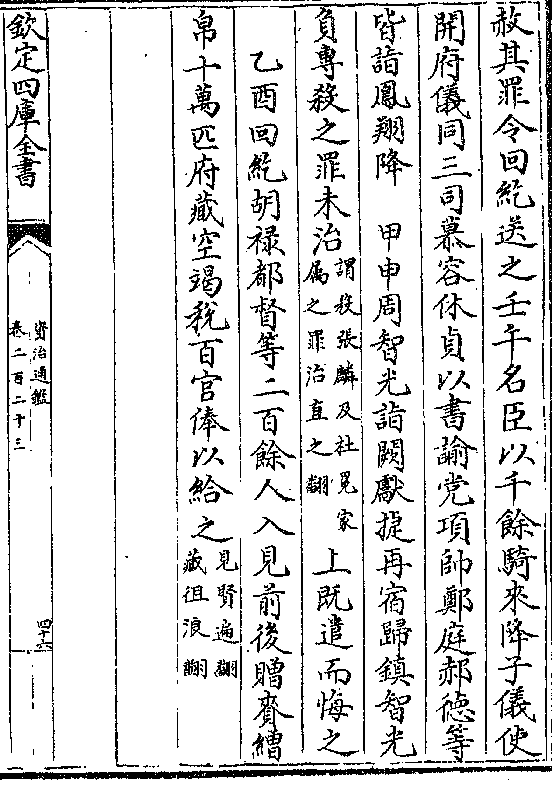 赦其罪令回紇送之壬午名臣以千餘騎來降子儀使
開府儀同三司慕容休貞以書諭党項帥鄭庭郝徳等
皆詣鳳翔降　甲申周智光詣闕獻捷再宿歸鎮智光
負專殺之罪未治謂殺張麟及杜冕家屬之罪治直之翻上既遣而悔之
乙酉回紇胡禄都督等二百餘人入見前後贈賚繒
帛十萬匹府藏空竭稅百官俸以給之見賢遍翻藏徂浪翻
欽定四庫全書
資治通鑑
卷二百二十三
四十六